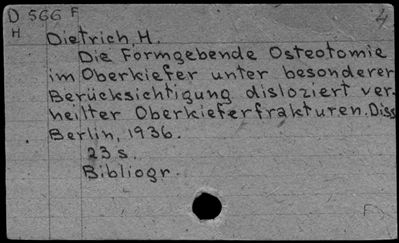 D 566 F
4
H
Dietrich, H.
Die Formgebende Osteotomie
im Oberkiefer unter besonderer
Berücksichtigung disloziert ver-
heilter Oberkieferfrakturen. Diss
Berlin, 1936.
23 s.
Bibliogr.
F